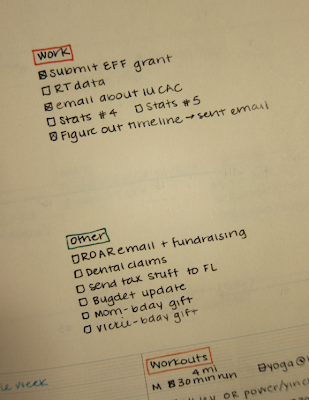 Work
Submit EFF grant
RT data
email about IUCAC
Stats #4 Stats #5
Figure out timeline → sent email
Other
ROAR email + fundraising
Dental claims
Send tax stuff to FL
Bugdet update
Mom-bday gift
Vickie-bday gift
Workouts
4 mi
M 30 min run yoga@
week
OR power/yin